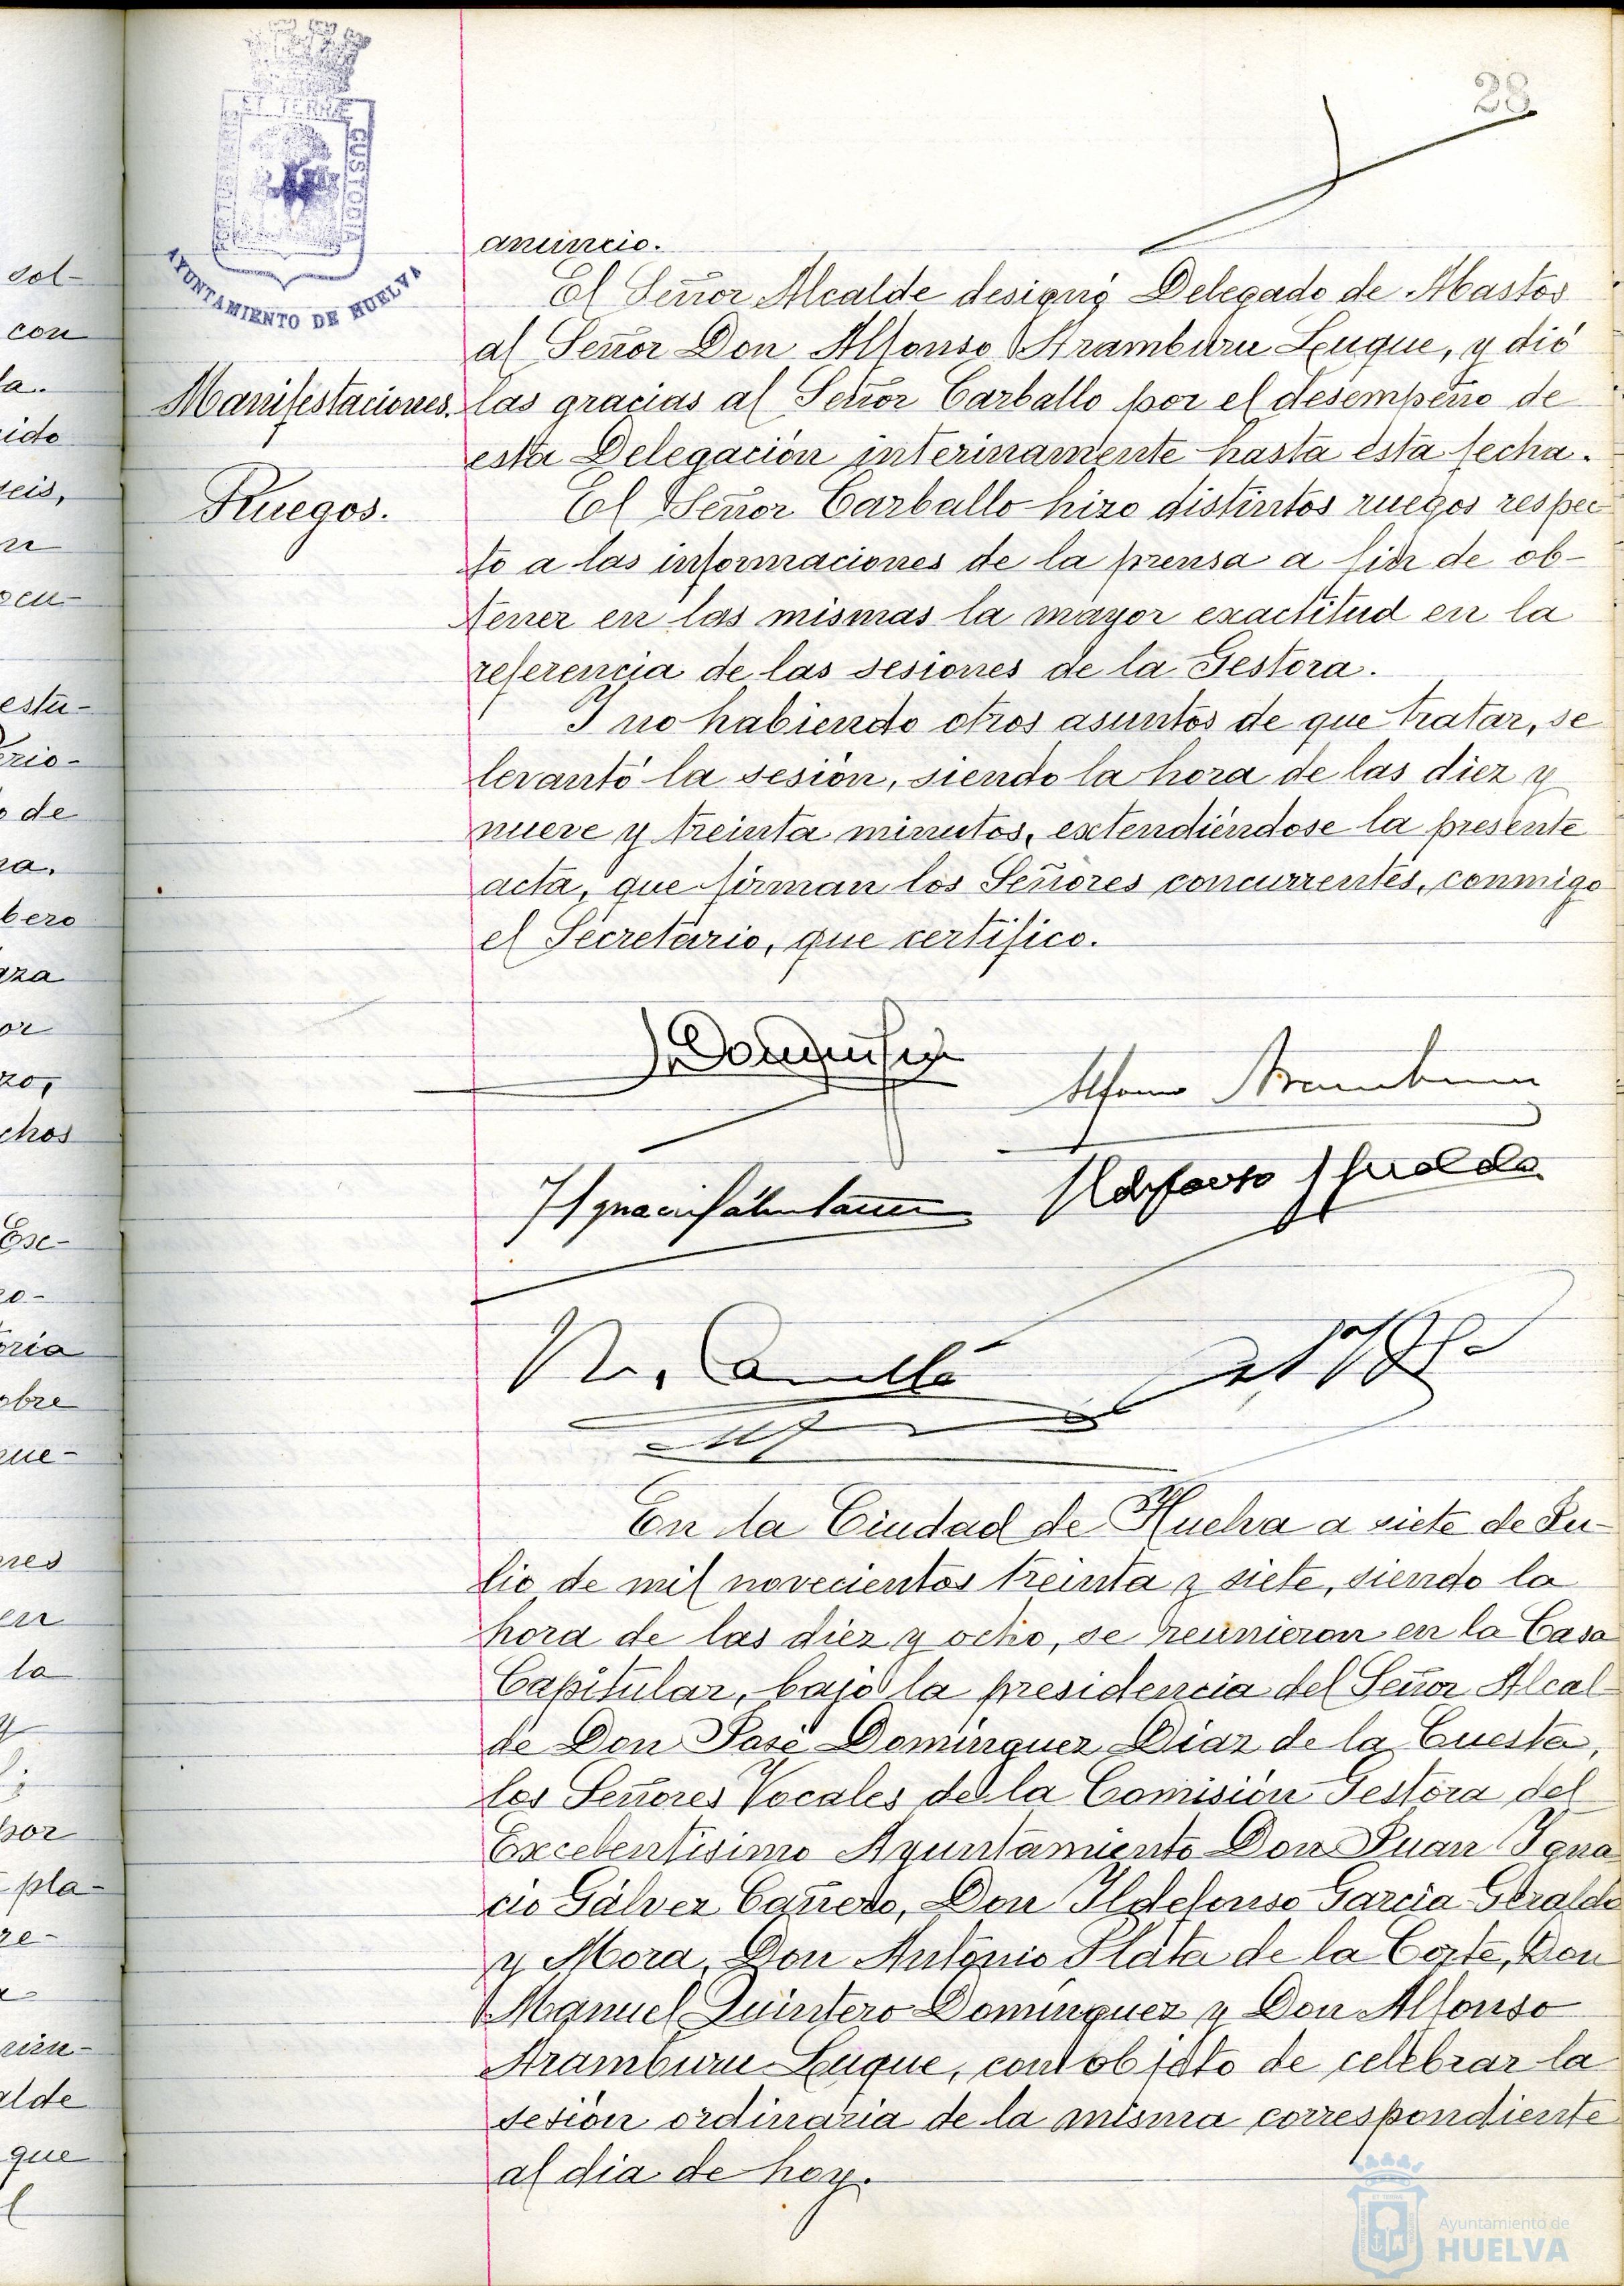 28
ET TERRÆ
CUSTODIA
AYUNTAMIENTO DE HUELVA
anuncio.
El Señor Alcalde designó Delegado de Abastos
al Señor Don Alfonso Aramburu Luque, y dió
Manifestaciones.
las gracias al Señor Carballo por el desempeño de
esta Delegación interinamente hasta esta fecha.
Ruegos.
El Señor Carballo hizo distintos ruegos respec
to a las informaciones de la prensa a fin de ob-
tener en las mismas la mayor exactitud en la
referencia de las sesiones de la Gestora.
Y no habiendo otros asuntos de que tratar, se
levantó la sesión, siendo la hora de las diez y
nueve y treinta minutos, extendiéndose la presente
acta, que firman los Señores concurrentes, conmigo
el Secretario, que certifico.
Alfonso Aramburu
En la Ciudad de Huelva a siete de Ju-
lio de mil novecientos treinta y siete, siendo la
hora de las diez y ocho, se reunieron en la Casa
Capitular, bajo la presidencia del Señor Alcal-
de Don José Dominguez Diaz de la Cuesta,
los Señores Vocales de la Comisión Gestora del
Excelentisimo Ayuntamiento Don Juan Igna
cio Gálvez Cañero, Don Ildefonso Garcia Geraldo
y Mora, Don Antonio Plata de la Corte, Don
Manuel Quintero Dominguez y Don Alfonso
Aramburu Luque, con objeto de celebrar la
sesión ordinaria de la misma correspondiente
al dia de hoy.
sol-
con
la.
ido
seis,
estu-
rio-
de
bero
chos
Esc-
oria
obre
que-
en
la
por
pla-
re-
alde
que
Ayuntamiento de
HUELVA